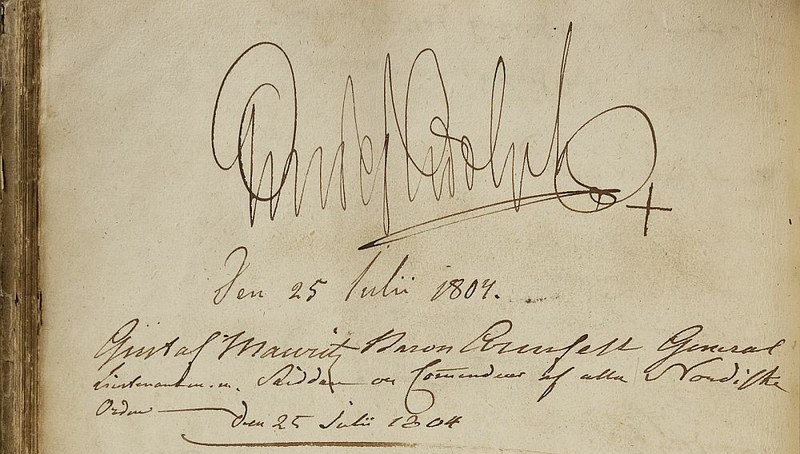 Gustaf Adolph
Den 25 Julii 1804.
Gustaf Mauritz Baron Armfelt General
Lieutenanten.m. Riddare oc Comendeur af alla Nordiska
Orden — Den 25 Julii 1804